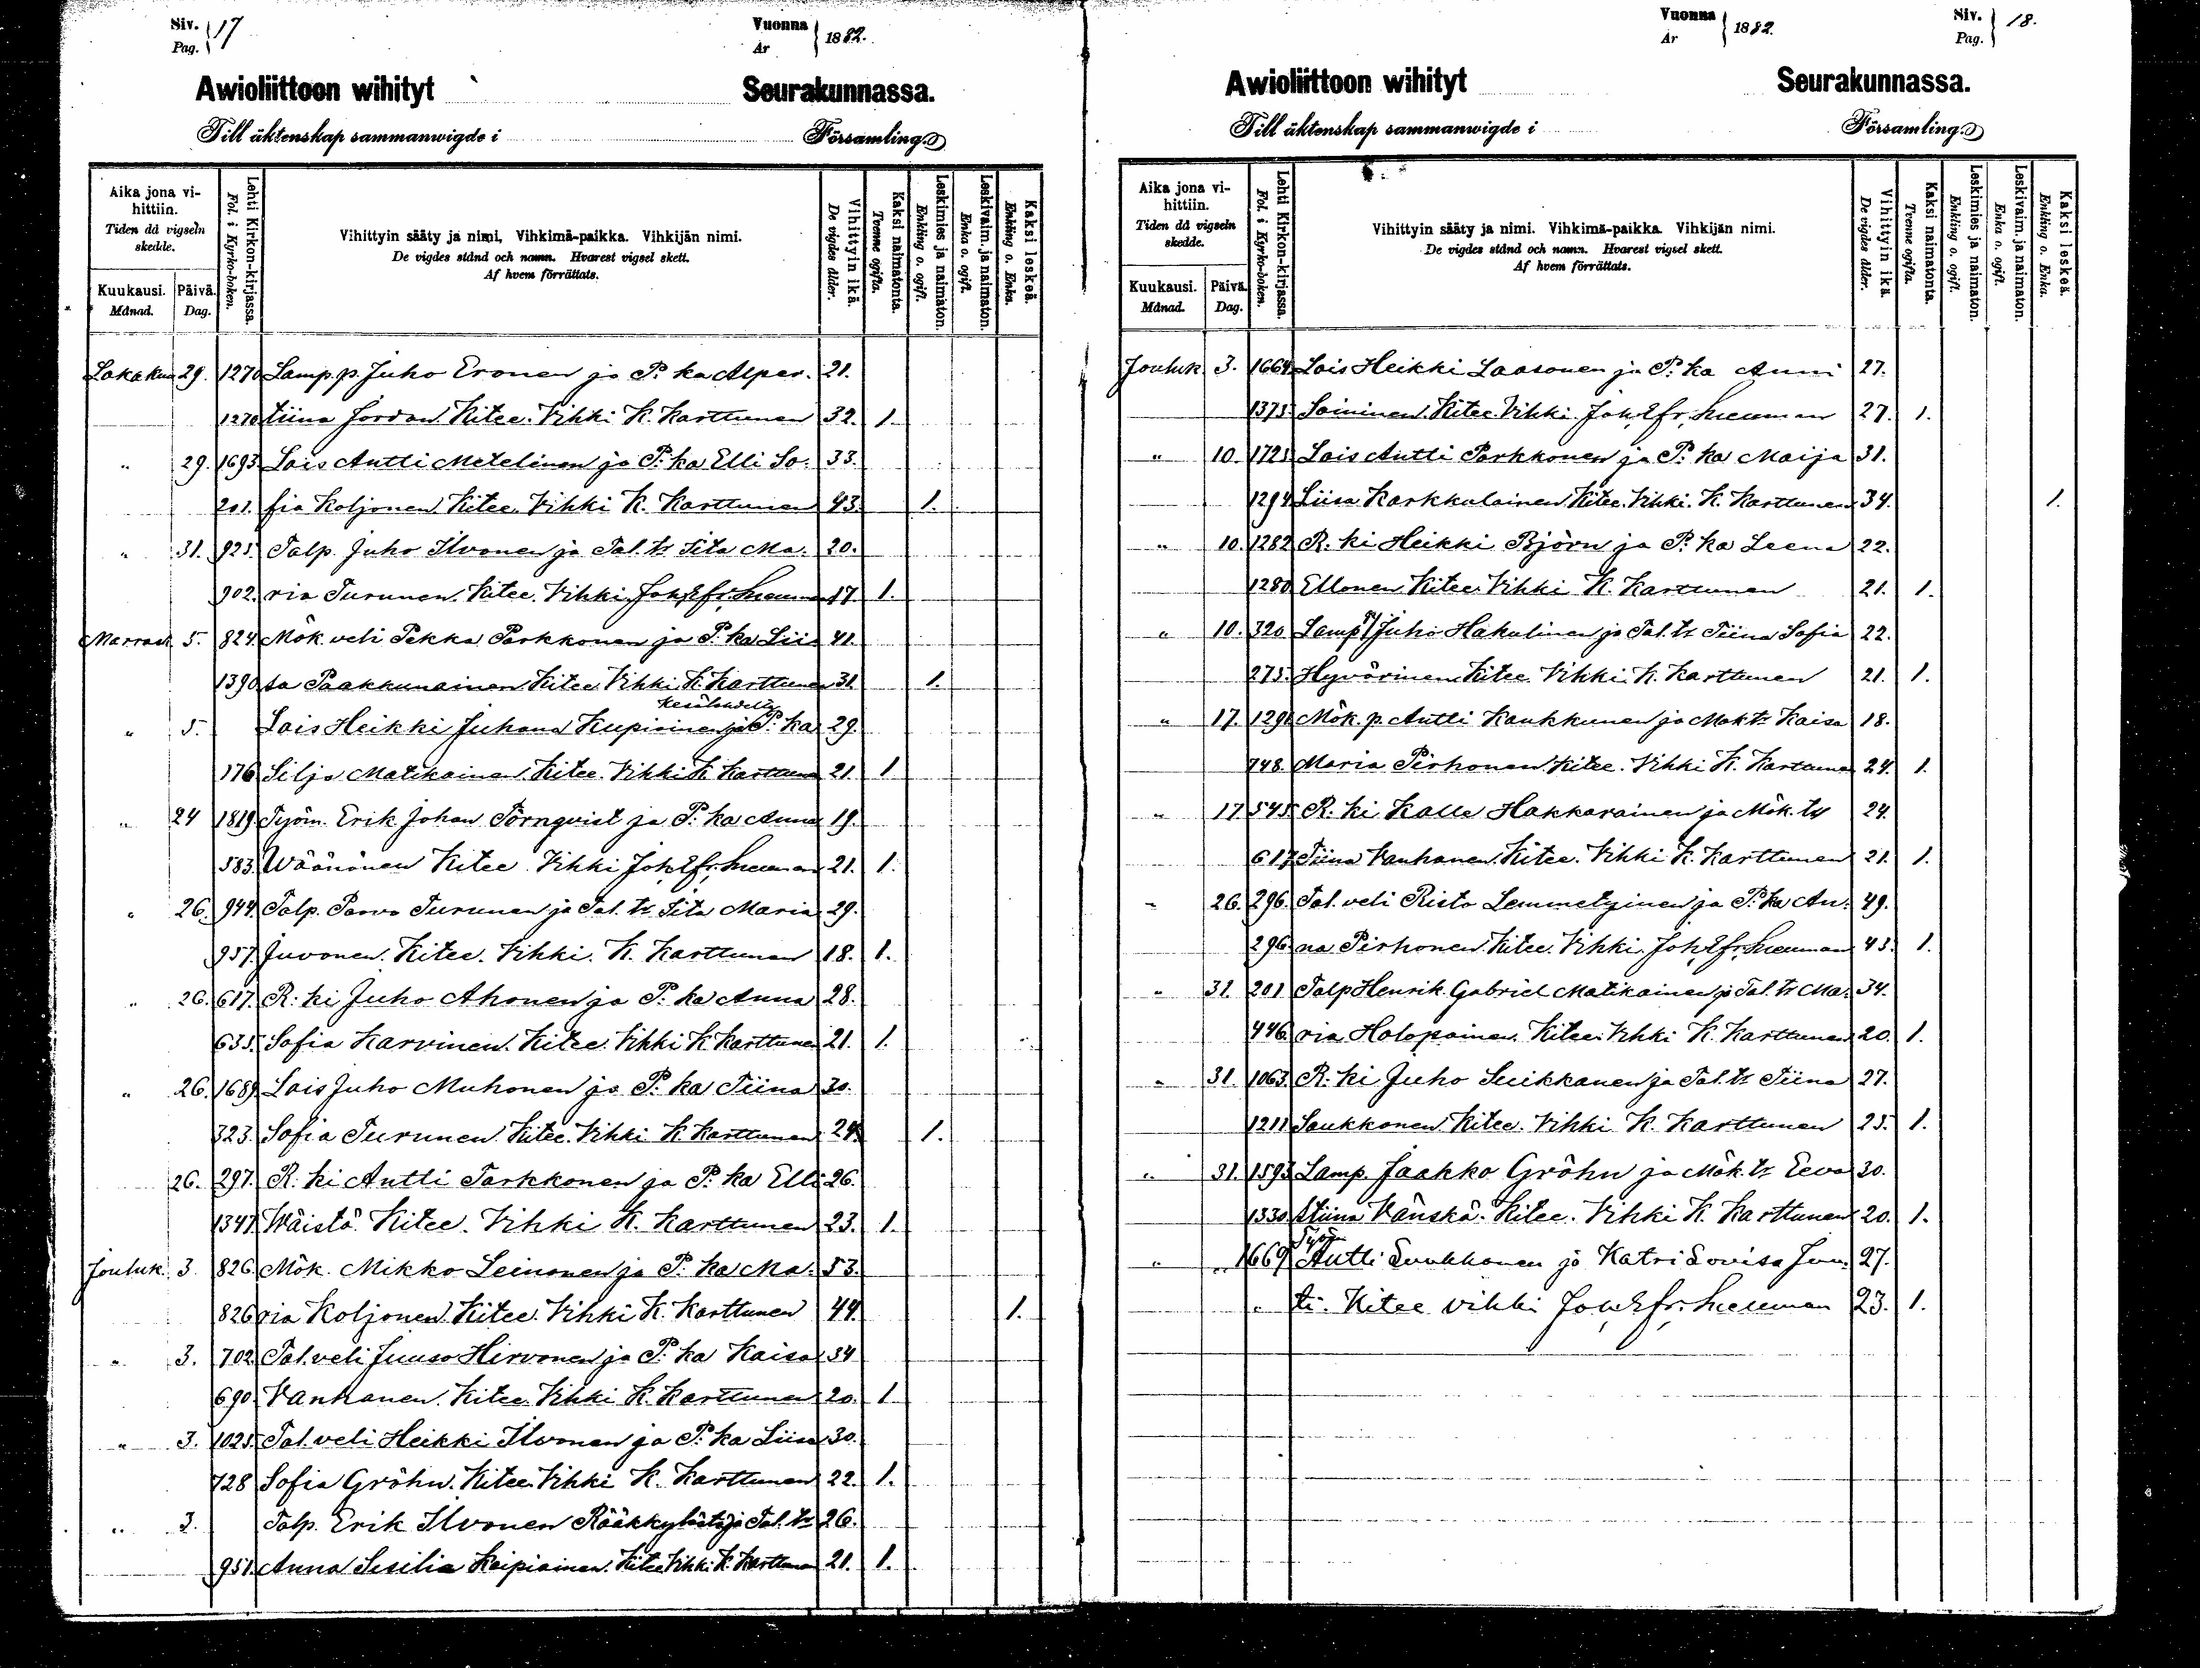 Siv. Pag. 17
Vuonna År 1882.
Awioliittoon wihityt Seurakunnassa.
Till äktenskap sammanwigde i Församling.
Aika jona vihittiin. Tiden då vigseln skedde.
Kuukausi. Månad.
Päivä. Dag.
Lehti Kirkon-kirjassa. Fol. i Kyrko-boken.
Vihittyin sääty ja nimi, Vihkimä-paikka. Vihkijän nimi.
De vigdes stånd och namn. Hvarest vigsel skett.
Af hvem förrättats.
Vihittyin ikä. De vigdes ålder.
Kaksi naimatonta. Tvenne ogifta.
Leskimies ja naimaton. Enkling o. ogift.
Leskivaim. ja naimaton. Enka o. ogift.
Kaksi leskeä. Enkling o. Enka.
Lokakuu 29. 1270 Lamp. p. Juho Eronen ja P:ka Alper- 21.
1270 tiina Jordan Kitee. Vihki K. Karttunen 32. 1.
" 29. 1693 Lois Antti Metelinen ja P:ka Elli So- 33.
201. fia Koljonen Kitee. Vihki K. Karttunen 43. 1.
" 31. 925. Talp. Juho Ilvonen ja Tal. tr Sita Ma- 20.
902. ria Turunen. Kitee. Vihki Joh. Efr. Sneuman 17. 1.
Marrask 5. 824. Mök. veli Pekka Parkkonen ja P:ka Lii- 41.
1390 sa Paakkunainen Kitee. Vihki K. Karttunen 31. 1.
Kesälahdelta
" 5. Lois Heikki Juhana Kupiainen ja P:ka 29.
176 Silja Matikainen. Kitee. Vihki K. Karttunen 21. 1
" 24 1819. Työm. Erik Johan Törnqvist ja P:ka Anna 19.
583. Wäänänen Kitee. Vihki Joh. Efr. Sneuman 21. 1.
" 26. 944. Talp. Paavo Turunen ja Tal. tr Sita Maria 29.
957. Juvonen. Kitee. Vihki. K. Karttunen 18. 1.
" 26. 617. R:ki Juho Ahonen ja P:ka Anna 28.
635. Sofia Karvinen. Kitee. Vihki K. Karttunen 21. 1.
" 26. 1689. Lois Juho Muhonen ja P:ka Tiina 30.
323. Sofia Turunen. Kitee. Vihki K. Karttunen 24. 1.
26. 297. R:ki Antti Tarkkonen ja P:ka Elli 26.
1347. Wäistö. Kitee. Vihki K. Karttunen 23. 1.
Jouluk. 3 826. Mök. Mikko Leinonen ja P:ka Ma- 53.
826 ria Koljonen. Kitee. Vihki K. Karttunen 44. 1.
" 3. 702. Tal. veli Juuso Hirvonen ja P:ka Kaisa 34
690. Vanhanen. Kitee. Vihki K. Karttunen 20. 1
" 3. 1025. Tal. veli Heikki Ilvonen ja P:ka Liisa 30.
728 Sofia Gröhn. Kitee. Vihki K. Karttunen 22. 1.
" 3. Talp. Erik Ilvonen Rääkkylästä ja Tal. tr 26.
951. Anna Sesilia Keipiainen. Kitee Vihki K. Karttunen 21. 1.
Vuonna År 1882.
Siv. Pag. 18.
Awioliittoon wihityt Seurakunnassa.
Till äktenskap sammanwigde i Församling.
Aika jona vihittiin. Tiden då vigseln skedde.
Kuukausi. Månad.
Päivä. Dag.
Lehti Kirkon-kirjassa. Fol. i Kyrko-boken.
Vihittyin sääty ja nimi. Vihkimä-paikka. Vihkijän nimi.
De vigdes stånd och namn. Hvarest vigsel skett.
Af hvem förrättats.
Vihittyin ikä. De vigdes ålder.
Kaksi naimatonta. Tvenne ogifta.
Leskimies ja naimaton. Enkling o. ogift.
Leskivaim. ja naimaton. Enka o. ogift.
Kaksi leskeä. Enkling o. Enka.
Jouluk 3. 1664. Lois Heikki Laasonen ja P:ka Anni 27.
1375. Soininen. Kitee. Vihki. Joh. Efr. Sneuman 27. 1.
" 10. 1725. Lois Antti Parkkonen ja P:ka Maija 31.
1294 Liisa Karkkulainen Kitee. Vihki. K. Karttunen 34. 1.
" 10. 1282 R:ki Heikki Björn ja P:ka Leena 22.
1280. Ellonen Kitee. Vihki K. Karttunen 21. 1.
" 10. 320 Lamp. p. Juho Hakulinen ja Tal. tr Tiina Sofia 22.
275. Hyvärinen. Kitee. Vihki. K. Karttunen 21. 1.
" 17. 1291 Mök. p. Antti Kaukkunen ja Mök tr Kaisa 18.
748. Maria Pirhonen. Kitee. Vihki K. Karttunen 24. 1.
" 17 545. R:ki Kalle Hakkarainen ja Mök. tr 24.
617. Tiina Vanhanen. Kitee. Vihki K. Karttunen 21. 1.
" 26. 296. Tal. veli Risto Lemmetyinen ja P:ka An- 49.
296 na Pirhonen. Kitee. Vihki. Joh. Efr. Sneuman 43. 1.
" 31. 201 Talp Henrik Gabriel Matikainen ja Tal. tr Ma- 34.
446. ria Holopainen. Kitee. Vihki K. Karttunen 20. 1.
" 31. 1063. R:ki Juho Suikkanen ja Tal. tr Tiina 27.
1211 Saukkonen. Kitee. Vihki K. Karttunen 25. 1.
" 31. 1593. Lamp. Jaakko Gröhn ja Mök. tr Eeva 30.
1330. Stiina Vänskä. Kitee. Vihki K. Karttunen 20. 1.
Työm
" " 1669 Antti Suukkonen ja Katri Lovisa Jun- 27.
" ti. Kitee vihki Joh. Efr. Sneuman 23. 1.